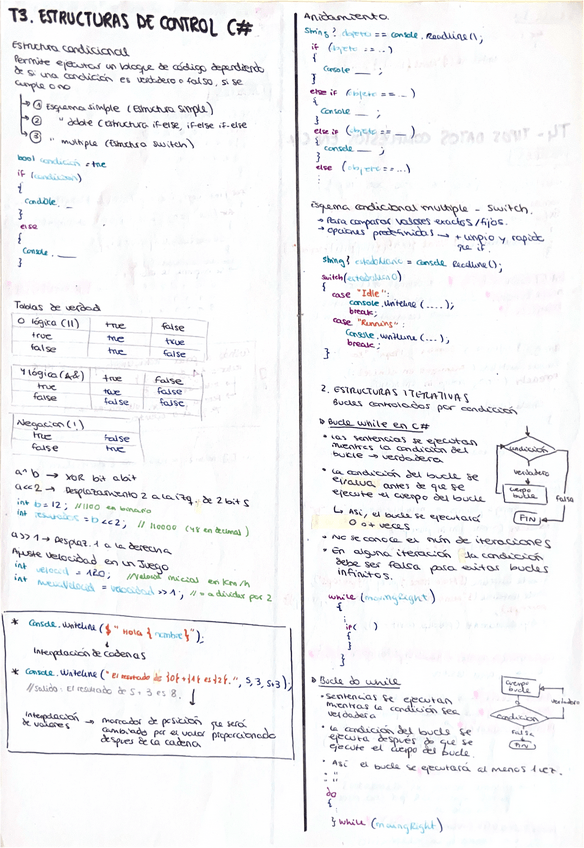 T3. ESTRUCTURAS DE CONTROL C#
Estructura condicional
Permite ejecutar un bloque de código dependiendo
de si una condición es verdadero o falso, si se
cumple o no
① Esquema simple (Estructura simple)
② " doble (estructura if-else, if-else if-else
③ " multiple (Estructura switch)
bool condicion = true
if (condicion)
{
}
else
{
Console. __
}
Tablas de verdad
O lógica (||) true false
true true true
false true false
Y lógica (&&) true false
true true false
false false false
Negacion (!)
true false
false true
a^b → XOR bit a bit
a<<2 → Desplazamiento 2 a la izq. de 2 bits
int b = 12; //1100 en binario
int resultado = b<<2; //110000 (48 en decimal)
a>>1 → Desplaz. 1 a la derecha
Ajuste velocidad en un juego
int velocidad = 120; //Velocidad inicial en km/h
int nuevaVelocidad = velocidad >>1; // = a dividir por 2
* Console.Writeline($" Hola {nombre}");
Interpolación de cadenas
* Console.Writeline("El resultado de {0} + {1} es {2}.", 5, 3, 5+3);
//salida: El resultado de 5 + 3 es 8.
Interpolación → marcador de posición que será
de valores cambiado por el valor proporcionado
después de la cadena
Anidamiento
String? objeto == console.Readline();
if (objeto == ..)
{
Console __ ;
}
else if (objeto == __ )
{
Console __ ;
}
else if (objeto == __ )
{
console __ ;
}
else (objeto == ...)
⋮
Esquema condicional multiple - Switch.
→ Para comparar valores exactos/fijos.
→ opciones predefinidas → + limpio y rapido
que if.
string? estadoUsuario = console.Readline();
switch(estadoUsuario)
{
case "Idle":
console.Writeline (....);
break;
case "Running":
Console.writeline (...);
break;
}
2. ESTRUCTURAS ITERATIVAS
Bucles controlados por condición
Bucle while en C#
• Las sentencias se ejecutan
mientras la condición del
bucle → verdadera
• La condición del bucle se
evalua antes de que se
ejecute el cuerpo del bucle
↳ Asi, el bucle se ejecutará
0 o + veces
• No se conoce el núm de iteraciones
• En alguna iteración la condición
debe ser falsa para evitar bucles
infinitos.
condición
verdadero
cuerpo
bucle
Falsa
FIN
while (movingRight)
{
⋮
if( )
{
}
}
Bucle do while
• sentencias se ejecutan
mientras la condición sea
verdadera
• la condición del bucle se
ejecuta después de que se
ejecute el cuerpo del bucle.
• Asi el bucle se ejecutará al menos 1 vez.
• "
• "
cuerpo
bucle
verdadera
condición
Falsa
FIN
do
{
⋮
} while (movingRight)